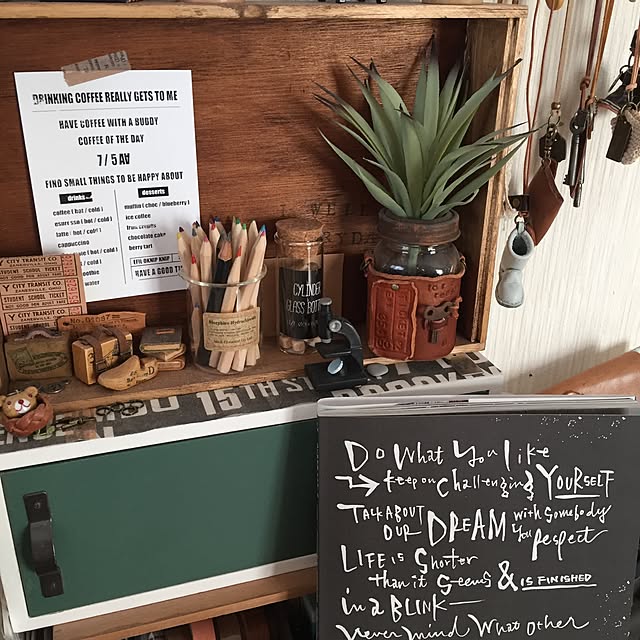 DRINKING COFFEE REALLY GETS TO ME
HAVE COFFEE WITH A BUDDY
COFFEE OF THE DAY
FIND SMALL THINGS TO BE HAPPY ABOUT
drinks
coffee ( hot / cold )
espresso ( hot / cold )
latte ( hot / cold )
cappuccino
desserts
muffin ( choc / blueberry )
ice coffee
chocolate cake
berry tart
HAVE A GOOD
Y CITY TRANSIT CO.
STUDENT SCHOOL TICKET
CITY TRANSIT CO.
STUDENT SCHOOL TICKET
CYLINDER
GLASS
WELL
15TH
Do What You like
keep on Challenging YOURSELF
TALK ABOUT OUR DREAM with somebody You Respect
LIFE is Shorter
than it seems & IS FINISHED
in a BLINK—
never mind What other